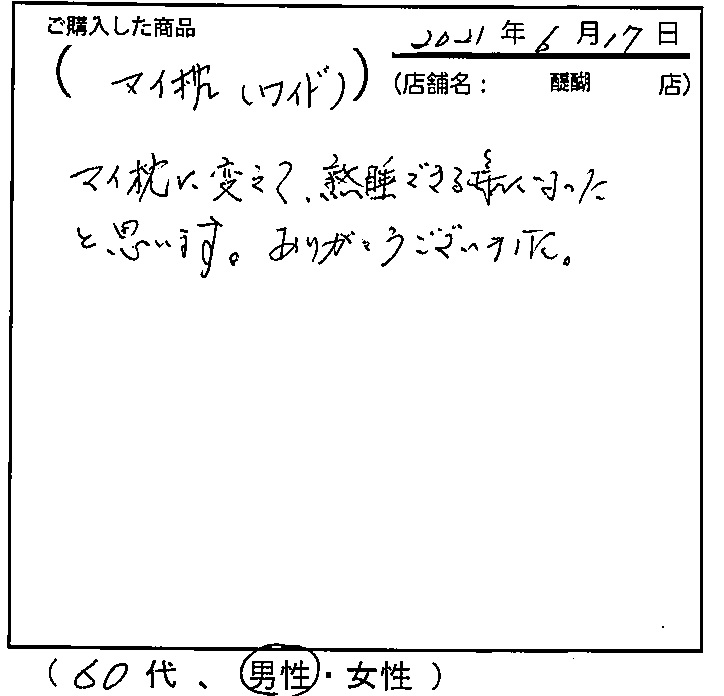 ご購入した商品
2021年6月17日
(マイ枕(ワイド))
(店舗名: 醍醐 店)
マイ枕に変えて、熟睡できる様になった
と思います。ありがとうございました。
(60代、男性・女性)